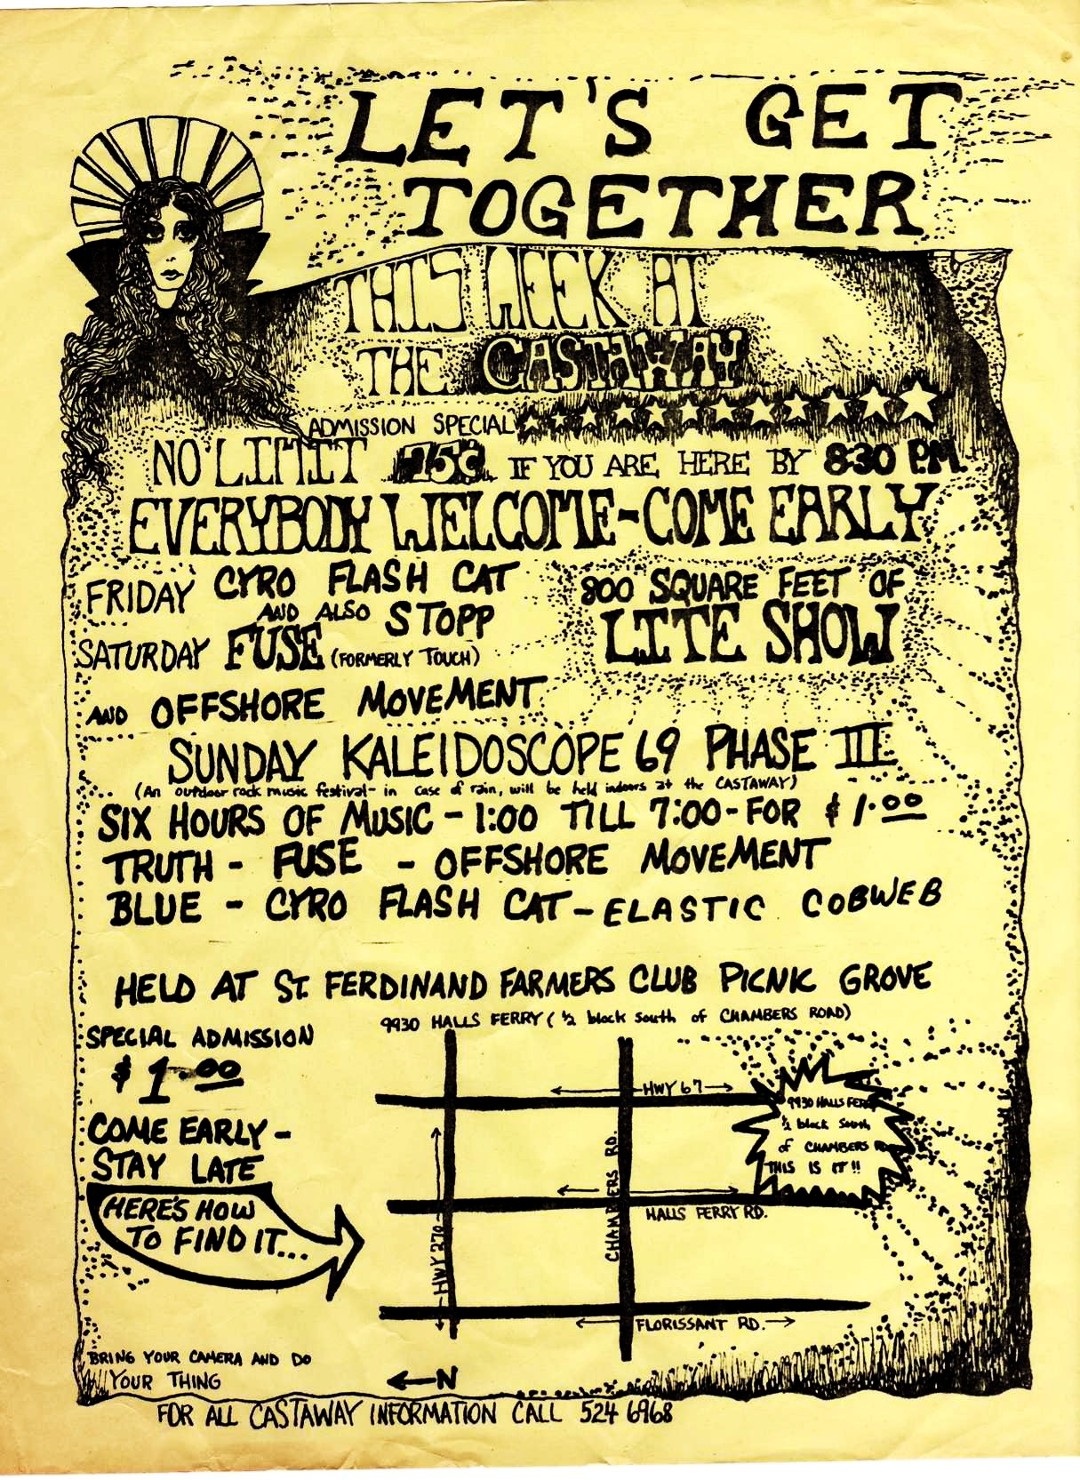 LET'S GET
TOGETHER
THIS WEEK AT
THE CASTAWAY
ADMISSION SPECIAL
NO LIMIT 75¢ IF YOU ARE HERE BY 8:30 P.M.
EVERYBODY WELCOME-COME EARLY
FRIDAY CYRO FLASH CAT
AND ALSO STOPP
800 SQUARE FEET OF
LITE SHOW
SATURDAY FUSE (FORMERLY TOUCH)
AND OFFSHORE MOVEMENT
SUNDAY KALEIDOSCOPE 69 PHASE III
(An outdoor rock music festival- in case of rain, will be held indoors at the CASTAWAY)
SIX HOURS OF MUSIC - 1:00 TILL 7:00-FOR $1.00
TRUTH - FUSE - OFFSHORE MOVEMENT
BLUE - CYRO FLASH CAT-ELASTIC COBWEB
HELD AT ST. FERDINAND FARMERS CLUB PICNIK GROVE
9930 HALLS FERRY (½ block south of CHAMBERS ROAD)
SPECIAL ADMISSION
$1.00
COME EARLY-
STAY LATE
HERE'S HOW
TO FIND IT...
HWY 67
9930 HALLS FER
½ block South
of CHAMBERS
THIS IS IT!!
HALLS FERRY RD.
CHAMBERS RD.
HWY 270
FLORISSANT RD.
BRING YOUR CAMERA AND DO
YOUR THING
N
FOR ALL CASTAWAY INFORMATION CALL 524 6968